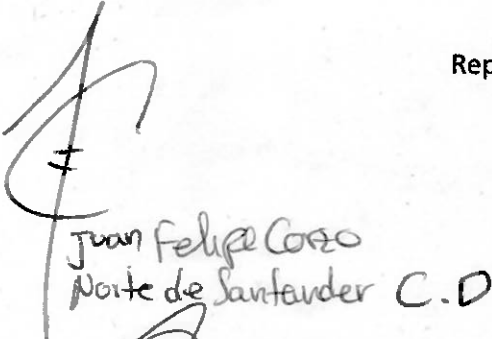 Rep
Juan Felipe Corzo
Norte de Santander C.D